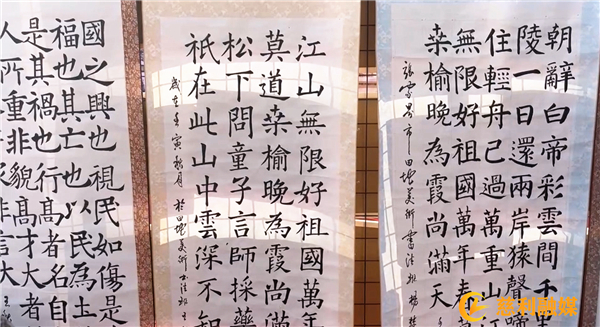 朝辭白帝彩雲間千里
陵一日還兩岸猿聲啼
住輕舟已過萬重山
無限好祖國萬年春
桑榆晚為霞尚滿天
張家界市田地美術書法班楊
江山無限好祖國萬年
莫道桑榆晚為霞尚滿
松下問童子言師採藥
祇在此山中雲深不知
歲在壬寅秋月於田地美術書法班王
國之興也視民如傷是
福也其亡也以民為土
是其禍也行高者名自
人所重非貌高才大者
慈利融媒